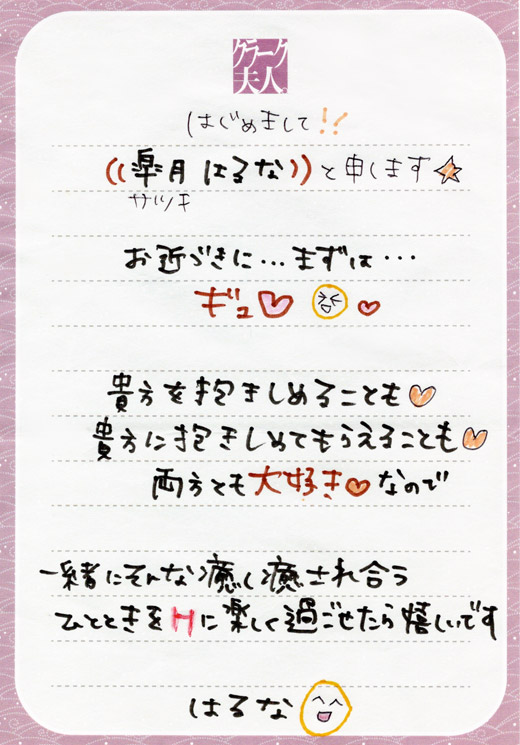 クラーク
夫人。
はじめまして!?
((楽月 はるな))と申します☆
サツキ
お近づきに…まずは…
ギュ♡ ♡
貴方を抱きしめることも♡
貴方に抱きしめてもらえることも♡
両方とも大好き♡なので
一緒にそんな癒し癒され合う
ひとときをHに楽しく過ごせたら嬉しいです
はるな